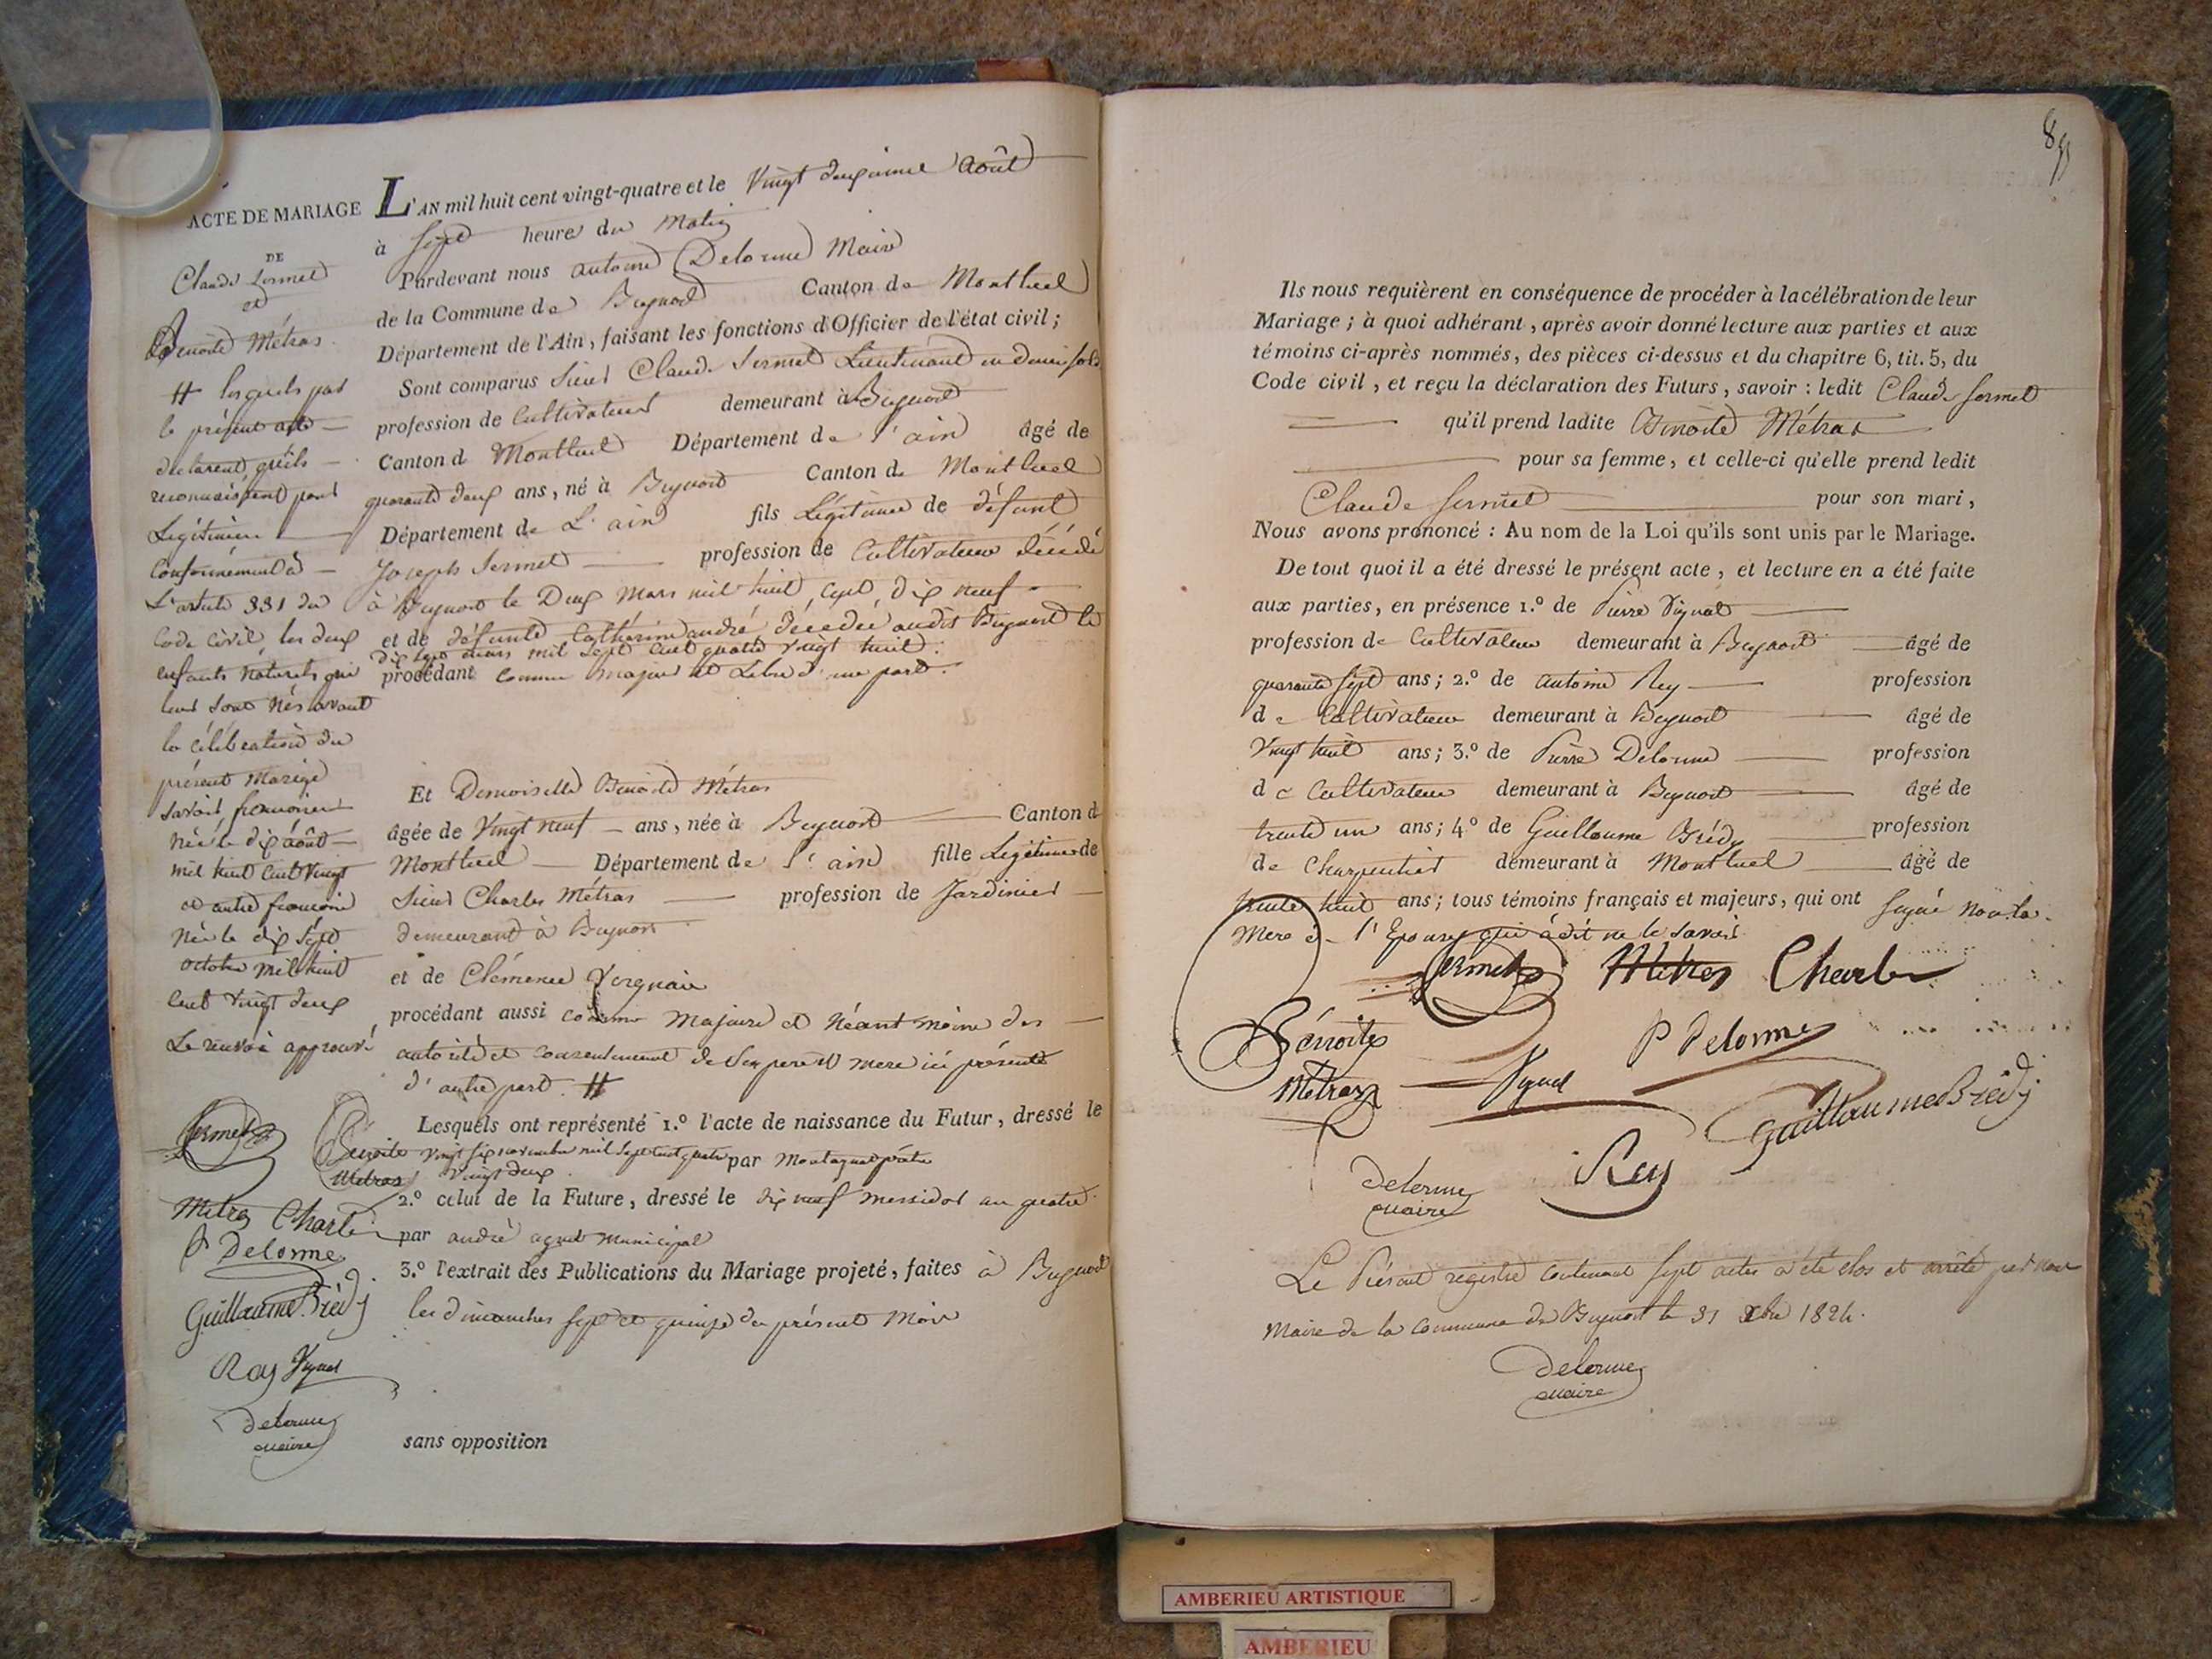 ACTE DE MARIAGE
DE
Claude Sermet
et
Benoite Métras
# lesquels par
le présent acte
déclarent qu'ils
reconnaissent pour
Légitimer
Conformément à
L'article 331 du
Code Civil, les deux
enfants naturels qui
leur sont nés avant
la célébration du
présent Mariage
Savoir françoise
née le dix août
mil huit cent vingt
et autre françoise
née le dix sept
octobre mil huit
cent vingt deux
Le renvoi approuvé
Sermet
Benoite
Métras
Métras Charle
P Delorme
Guillaume Brédy
Rey Vignat
Delorme
maire
L'AN mil huit cent vingt-quatre et le Vingt deuxieme Août
à Sept heure du Matin
Pardevant nous antoine Delorme Maire
de la Commune de Beynost Canton de Montluel
Département de l'Ain, faisant les fonctions d'Officier de l'état civil;
Sont comparus Sieur Claude Sermet Lieutenant en demi solde
profession de Cultivateur demeurant à Beynost
Canton d Montluel Département de l'ain âgé de
quarante deux ans, né à Beynost Canton de Montluel
Département de L'ain fils Légitime de défunt
Joseph Sermet profession de Cultivateur décédé
à Beynost le Deux Mars mil huit cent dix neuf
et de défunte Catherine andré décédée audit Beynost le
dix sept mars mil sept cent quatre vingt huit.
procédant comme majeur et Libre d'une part.
Et Demoiselle Benoite Métras
âgée de Vingt neuf ans, née à Beynost Canton d
Montluel Département de l'ain fille Légitime de
Sieur Charles Métras profession de Jardinier
demeurant à Beynost
et de Clémence
procédant aussi comme Majeure et Néant moins des
autorité et consentement de Ses pere et mere ici présents
d'autre part. #
Lesquels ont représenté 1.º l'acte de naissance du Futur, dressé le
vingt six novembre mil sept cent quatre par Montagnat prêtre
Vingt deux
2.º celui de la Future, dressé le dix neuf messidor an quatre
par andré agent municipal
3.º l'extrait des Publications du Mariage projeté, faites à Beynost
les dimanches sept et quinze du présent Mois
sans opposition
89
Ils nous requièrent en conséquence de procéder à la célébration de leur
Mariage; à quoi adhérant, après avoir donné lecture aux parties et aux
témoins ci-après nommés, des pièces ci-dessus et du chapitre 6, tit. 5, du
Code civil, et reçu la déclaration des Futurs, savoir : ledit Claude Sermet
qu'il prend ladite Benoite Métras
pour sa femme, et celle-ci qu'elle prend ledit
Claude Sermet pour son mari,
Nous avons prononcé : Au nom de la Loi qu'ils sont unis par le Mariage.
De tout quoi il a été dressé le présent acte, et lecture en a été faite
aux parties, en présence 1.º de Pierre Vignat
profession de Cultivateur demeurant à Beynost âgé de
quarante sept ans; 2.º de antoine Rey profession
de Cultivateur demeurant à Beynost âgé de
Vingt huit ans; 3.º de Pierre Delorme profession
de Cultivateur demeurant à Beynost âgé de
trente un ans; 4.º de Guillaume Brédy profession
de Charpentier demeurant à Montluel âgé de
trente huit ans; tous témoins français et majeurs, qui ont signé non la
Mere de l'Epouse qui a dit ne le savoir
Sermet Métras Charle
Bénoite
Métras
Vignat
P Delorme
Guillaume Brédy
Rey
Delorme
maire
Le Présent registre contenant sept actes a été clos et arrêté par nous
Maire de la Commune de Beynost le 31 Xbre 1824.
Delorme
maire
AMBERIEU ARTISTIQUE
AMBERIEU